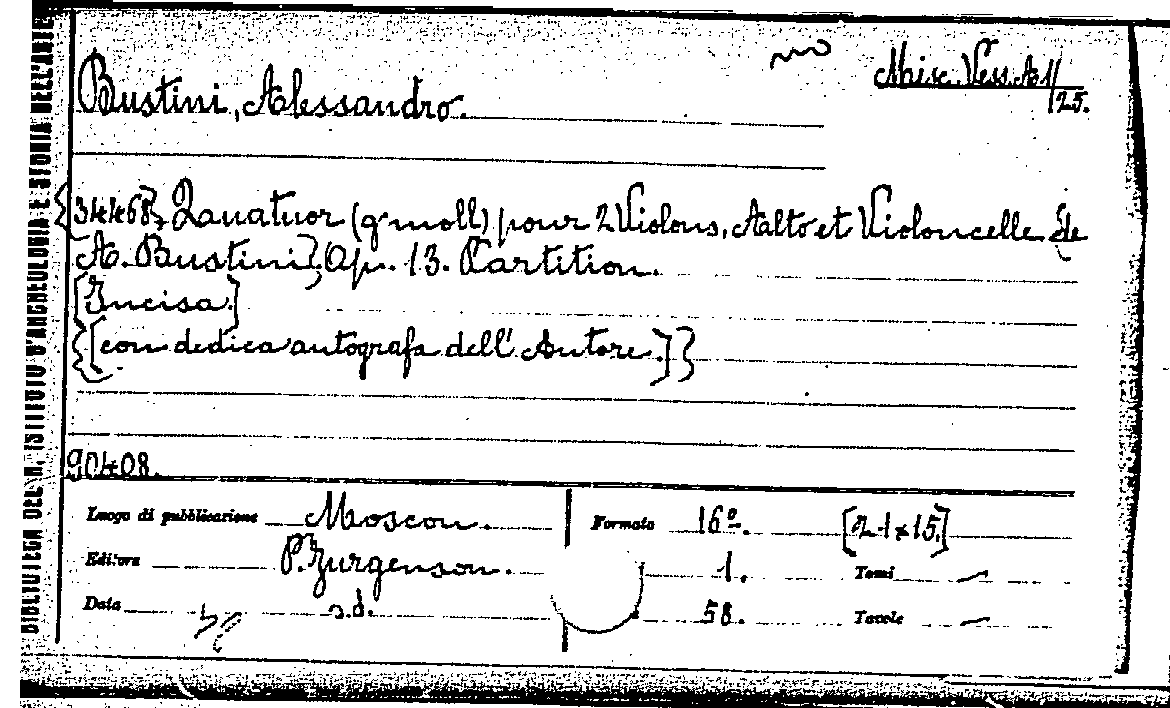 BIBLIOTECA DEL R. ISTITUTO D'ARCHEOLOGIA E STORIA DELL'ARTE
ms
Misc. Vess. A1/25.
Bustini, Alessandro.
{34468} Quatuor (g moll) pour 2 Violons, Alto et Violoncelle de
A. Bustini}, Op. 13. Partition.
[Incisa.]
{[con dedica autografa dell' Autore.]}
90408.
Luogo di pubblicazione Moscou. Formato 16º. [21x15]
Editore P. Jurgenson. 1. Tomi —
Data s.d. 58. Tavole —